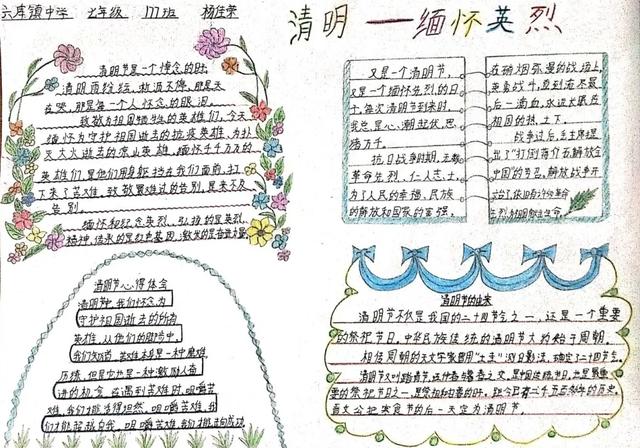 六库镇中学 七年级 177班 杨佳荣
清明——缅怀英烈
清明节是一个悼念的时
清明雨纷纷,
在哭,那是每一个人怀念的眼泪。
致敬为祖国牺牲的英雄们,今天
缅怀为守护祖国逝去的抗疫英雄,为扑
灭大火逝去的凉山英雄,缅怀千千万万的
英雄们,是他们用身躯挡在我们面前,扛
下来了苦难,致敬
告别。
缅怀和纪念英烈,弘扬的是英烈
精神,传承的是红色基因,
又是一个清明节,
又是一个缅怀先烈的日
子,每次清明节到来时,
我总是心潮起伏,思
绪万千。
抗日战争时期,无数
革命先烈、仁人志士,
为了人民的幸福,民族
的解放和国家的富强,
在硝烟弥漫的战场上,
英勇战斗,直到流尽最
后一滴血,永远长眠在
祖国的热土下。
战争过后,毛主席提
出了“打倒蒋介石,解放全
中国”的号召,解放战争开
始了,依旧有许多革命
先烈
清明节心得体会
清明节中,我们怀念为
守护祖国逝去的所有
英雄,从他们的脚步中,
我们知道,苦难本身是一种磨难、
历练,但是它也是一种激励人奋
进的机会,在遇到苦难时,咀嚼苦
难,我们能活得坦然,咀嚼苦难,我
们才能超越自我,咀嚼苦难,我们才能走向成功
清明节的由来
清明节不仅是我国的二十四节气之一,还是一个重要
的祭祀节日。中华民族传统的清明节大约始于周朝,
相传周朝的天文学家曾用“土圭”测日影法,确定了二十四节气。
清明节又叫踏青节,在仲春与暮春之交,是中国传统节日,也是最重
要的祭祀节日之一,是祭祖和扫墓的日子。距今已有二千五百余年的历史。
晋文公把寒食节的后一天定为清明节。